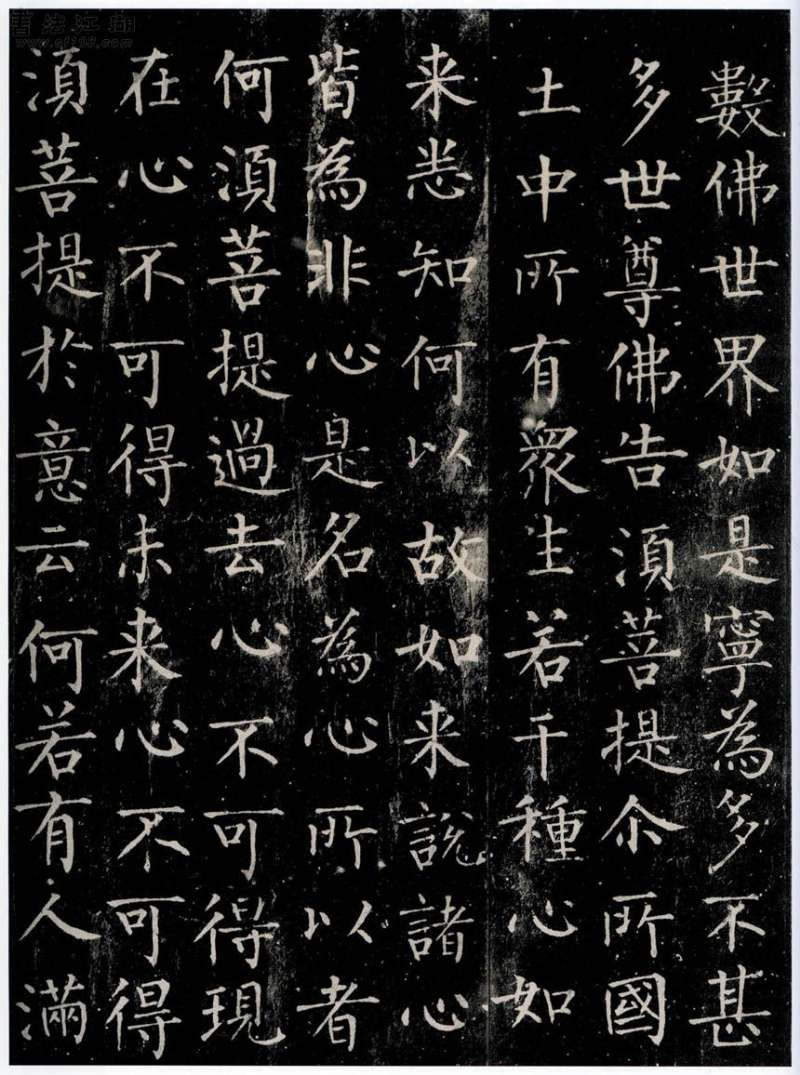 書法江湖
數佛世界如是寧為多不甚
多世尊佛告湏菩提尒所國
土中所有衆生若干種心如
来悉知何以故如来說諸心
皆為非心是名為心所以者
何湏菩提過去心不可得現
在心不可得未来心不可得
湏菩提於意云何若有人滿